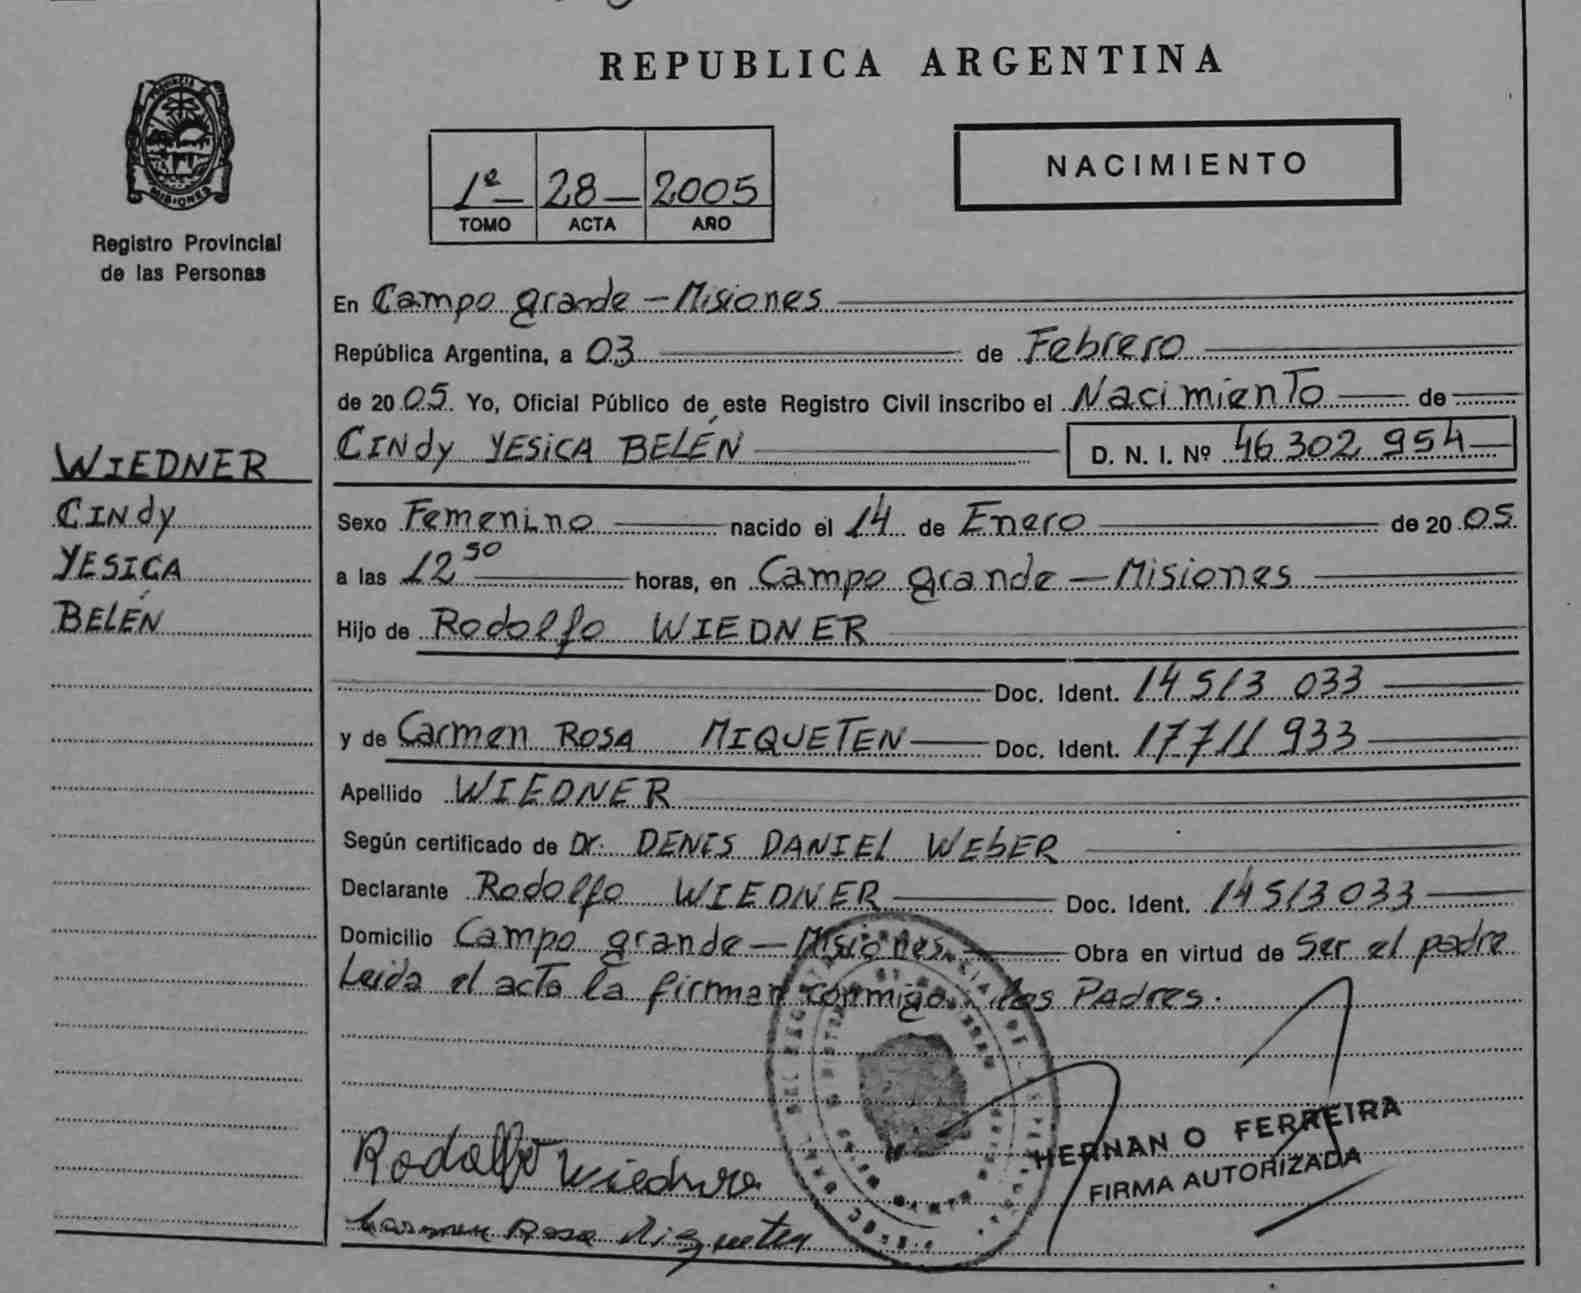 REPUBLICA ARGENTINA
PROVINCIA DE
MISIONES
Registro Provincial
de las Personas
1º 28 2005
TOMO ACTA AÑO
NACIMIENTO
En Campo grande - Misiones
República Argentina, a 03 de Febrero
de 2005 Yo, Oficial Público de este Registro Civil inscribo el Nacimiento de
CINdy YESICA BELÉN D. N. I. Nº 46 302 954
WIEDNER
CINdy
YESICA
BELÉN
Sexo Femenino nacido el 14 de Enero de 2005
a las 12 50 horas, en Campo grande - Misiones
Hijo de Rodolfo WIEDNER
Doc. Ident. 14 513 033
y de Carmen ROSA MIQUETEN Doc. Ident. 17711 933
Apellido WIEDNER
Según certificado de Dr. DENIS DANIEL WEBER
Declarante Rodolfo WIEDNER Doc. Ident. 14 513 033
Domicilio Campo grande - Misiones. Obra en virtud de ser el padre
Leida el acta la firman conmigo los PAdres.
HERNAN O FERREIRA
FIRMA AUTORIZADA
Rodolfo Wiedner
Carmen Rosa Miqueten